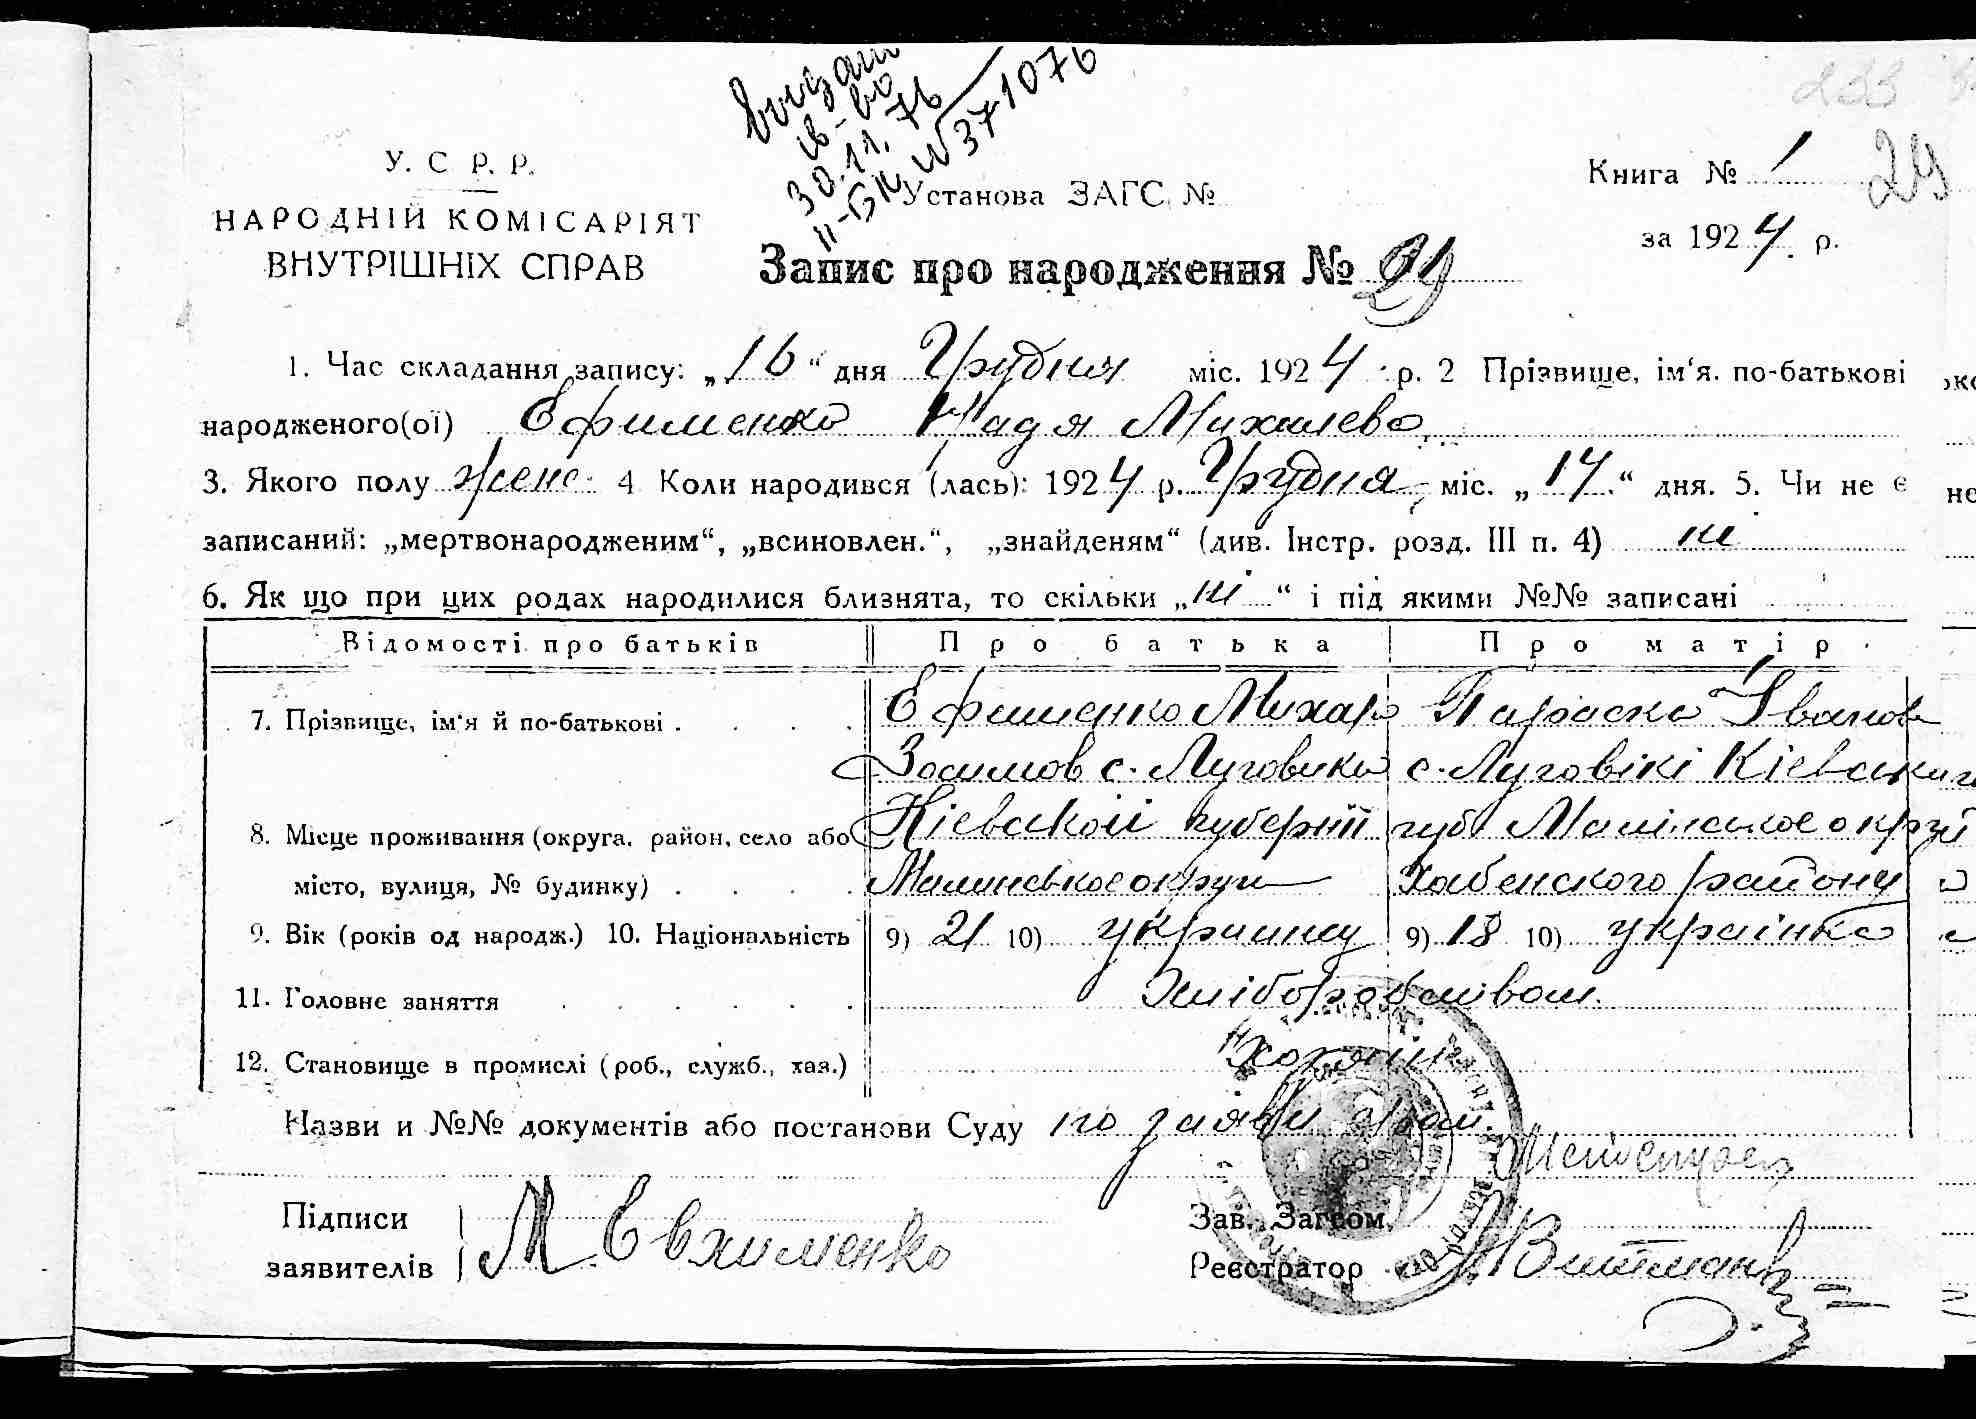 видан
св-во
30.11.76
ІІ-БК № 371076
233
29
У. С. Р. Р.
НАРОДНІЙ КОМІСАРІЯТ
ВНУТРІШНІХ СПРАВ
Установа ЗАГС, №
Книга № 1
за 1924 р.
Запис про народження № 29
1. Час складання запису: „16“ дня Грудня міс. 1924 р. 2 Прізвище, ім‘я, по-батькові
народженого(ої) Ефименко Надя Михалева
3. Якого полу женс. 4 Коли народився (лась): 1924 р. Грудня міс. „14“ дня. 5. Чи не є
записаний: „мертвонародженим“, „всиновлен.“, „знайденям“ (див. Інстр. розд. III п. 4) ні
6. Як що при цих родах народилися близнята, то скільки „ні“ і під якими №№ записані
Відомості про батьків Про батька Про матір
7. Прізвище, ім‘я й по-батькові . . . . Ефименко Михайло Параска Іванова
Зосимов с. Луговики с. Луговікі Кіевського
Кіевской губернії губ Малінськое округі
8. Місце проживання (округа, район, село або
місто, вулиця, № будинку) . . . . Малинськое округи Хабенского району
9. Вік (років од народж.) 10. Національність 9) 21 10) украинец 9) 18 10) українка
11. Головне заняття . . . . . . Хліборобством.
12. Становище в промислі (роб., служб., хаз.) Хозяїн
Назви и №№ документів або постанови Суду по заяви
Підписи
заявителів М. Евхименко
Зав. Загсом
Реєстратор